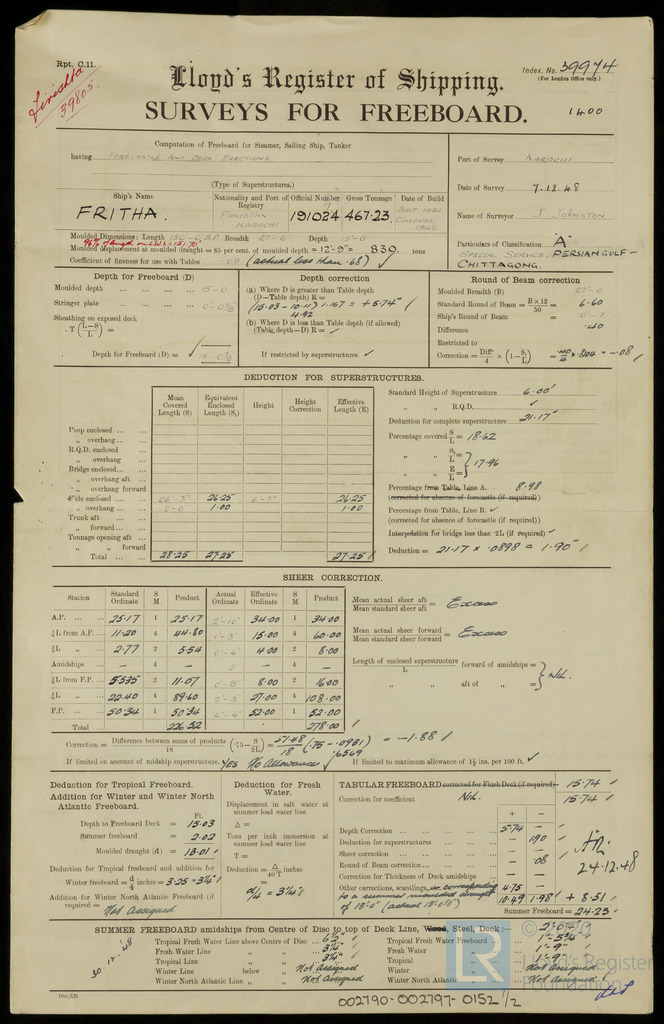 Rpt. C.11.
39805
Index. No. 39974
(For London Office only.)
Lloyd's Register of Shipping.
SURVEYS FOR FREEBOARD.
1400
Computation of Freeboard for Steamer, Sailing Ship, Tanker
having FORECASTLE AND DECK ERECTIONS
(Type of Superstructures.)
Port of Survey KARACHI
Date of Survey 7.12.48
Name of Surveyor J. JOHNSTON
Particulars of Classification A
SPECIAL SERVICE, PERSIAN GULF-
CHITTAGONG.
Ship's Name
Nationality and Port of Registry
Official Number
Gross Tonnage
Date of Build
FRITHA.
PAKISTAN
KARACHI
191024
467.23
Moulded Dimensions: Length 150-0 B.P. Breadth 27-6 Depth 15-0
Moulded displacement at moulded draught = 85 per cent. of moulded depth = 12'-9" = 830. tons
Coefficient of fineness for use with Tables .68 (actual less than .68)
Depth for Freeboard (D)
Moulded depth ... 15-0
Stringer plate ... 0-0 3/8
Sheathing on exposed deck
T (L-S / L) =
Depth for Freeboard (D) = 15-0 3/8
Depth correction
(a) Where D is greater than Table depth
(D-Table depth) R =
(15.03 - 10.11) 1.167 = +5.74"
4.92
(b) Where D is less than Table depth (if allowed)
(Table depth-D) R =
If restricted by superstructures
Round of Beam correction
Moulded Breadth (B) 27-6
Standard Round of Beam = B×12 / 50 = 6.60
Ship's Round of Beam =
Difference .40
Restricted to
Correction = Diff / 4 × (1 - S1 / L) = .40 / 4 × .8104 = -.08
DEDUCTION FOR SUPERSTRUCTURES.
Mean Covered Length (S)
Equivalent Enclosed Length (S1)
Height
Height Correction
Effective Length (E)
Poop enclosed
" overhang
R.Q.D. enclosed
" overhang
Bridge enclosed
" overhang aft
" overhang forward
F'cle enclosed 26-3" 26.25 26.25
" overhang 2-0 1.00 1.00
Trunk aft
" forward
Tonnage opening aft
" " forward
Total 28.25 27.25 27.25
Standard Height of Superstructure 6.00'
" " R.Q.D.
Deduction for complete superstructure 21.17"
Percentage covered S / L = 18.62
" " S1 / L =
" " E / L = } 17.96
Percentage from Table, Line A. 8.98
(corrected for absence of forecastle (if required))
Percentage from Table, Line B.
(corrected for absence of forecastle (if required))
Interpolation for bridge less than .2L (if required)
Deduction = 21.17 × .0898 = 1.90"
SHEER CORRECTION.
Station
Standard Ordinate
S M
Product
Actual Ordinate
Effective Ordinate
S M
Product
A.P. 25.17 1 25.17 2'-10" 34.00 1 34.00
1/6 L from A.P. 11.20 4 44.80 1'-3" 15.00 4 60.00
1/3 L " 2.77 2 5.54 0'-4" 4.00 2 8.00
Amidships - 4 - 0' - 4 -
1/3 L from F.P. 5.535 2 11.07 0'-8" 8.00 2 16.00
1/6 L " 22.40 4 89.60 2'-3" 27.00 4 108.00
F.P. 50.34 1 50.34 4'-4" 52.00 1 52.00
Total 226.52 278.00
Mean actual sheer aft / Mean standard sheer aft = Excess
Mean actual sheer forward / Mean standard sheer forward = Excess
Length of enclosed superstructure / L forward of amidships =
" " aft of " = } NIL.
Correction = Difference between sums of products / 18 (.75 - S / 2L) = 51.48 / 18 (.75 - .0931) = -1.88
.6569
If limited on account of midship superstructure. YES No Allowance
If limited to maximum allowance of 1½ ins. per 100 ft.
Deduction for Tropical Freeboard.
Addition for Winter and Winter North Atlantic Freeboard.
Ft.
Depth to Freeboard Deck = 15.03
Summer freeboard = 2.02
Moulded draught (d) = 13.01
Deduction for Tropical freeboard and addition for
Winter freeboard = d / 4 inches = 3.25 = 3¼"
Addition for Winter North Atlantic Freeboard (if
required = Not Assigned
Deduction for Fresh Water.
Displacement in salt water at summer load water line
Δ =
Tons per inch immersion at summer load water line
T =
Deduction = Δ / 40T inches
= d/4 = 3¼"
TABULAR FREEBOARD corrected for Flush Deck (if required) 15.74
Correction for coefficient NIL. 15.74
+ -
Depth Correction 5.74 -
Deduction for superstructures - 1.90
Sheer correction - -
Round of Beam correction - .08
Correction for Thickness of Deck amidships - -
Other corrections, scantlings, 4.75 -
to a summer moulded draught
of 13'-0" 10.49 1.98 + 8.51
Summer Freeboard = 24.25
24.12.48
SUMMER FREEBOARD amidships from Centre of Disc to top of Deck Line, Wood, Steel, Deck :—
Tropical Fresh Water Line above Centre of Disc 6½"
Fresh Water Line " " 3¼"
Tropical Line " " 3¼"
Winter Line below " Not Assigned
Winter North Atlantic Line " " Not Assigned
Tropical Fresh Water Freeboard
Fresh Water " 1'-9"
Tropical " 1'-9"
Winter " Not Assigned
Winter North Atlantic " Not Assigned
30.12.48
002790-002797-0152 1/2
LR
Lloyd's Register
Foundation